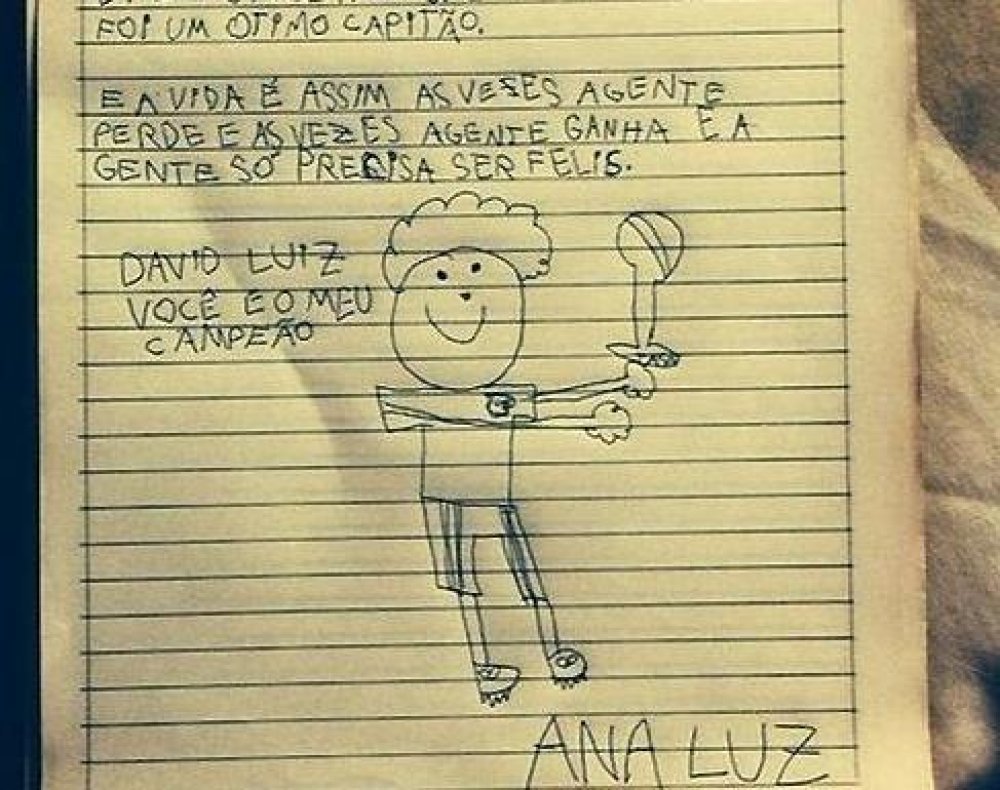 FOI UM OTIMO CAPITÃO.
E A VIDA É ASSIM AS VESES AGENTE
PERDE E AS VEZES AGENTE GANHA E A
GENTE SÓ PRECISA SER FELIS.
DAVID LUIZ
VOCÊ E O MEU
CAMPEÃO
ANA LUZ